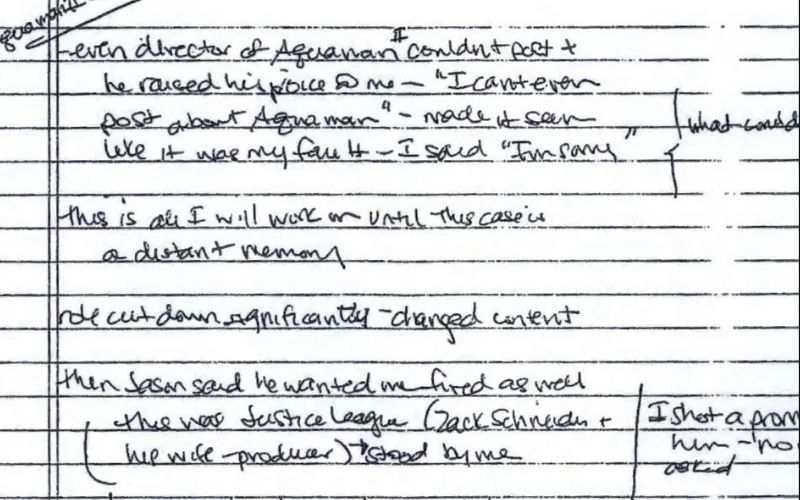 quaman II
-even director of Aquaman II couldn't post +
he raised his voice @ me - "I can't even
post about Aquaman" - made it seem
like it was my fault - I said "I'm sorry"
what could
this is all I will work on until this case is
a distant memory
role cut down significantly - changed content
then Jason said he wanted me fired as well
this was Justice League (Zack Schneider +
his wife - producer) → stood by me
I shot a prom
him - no
asked